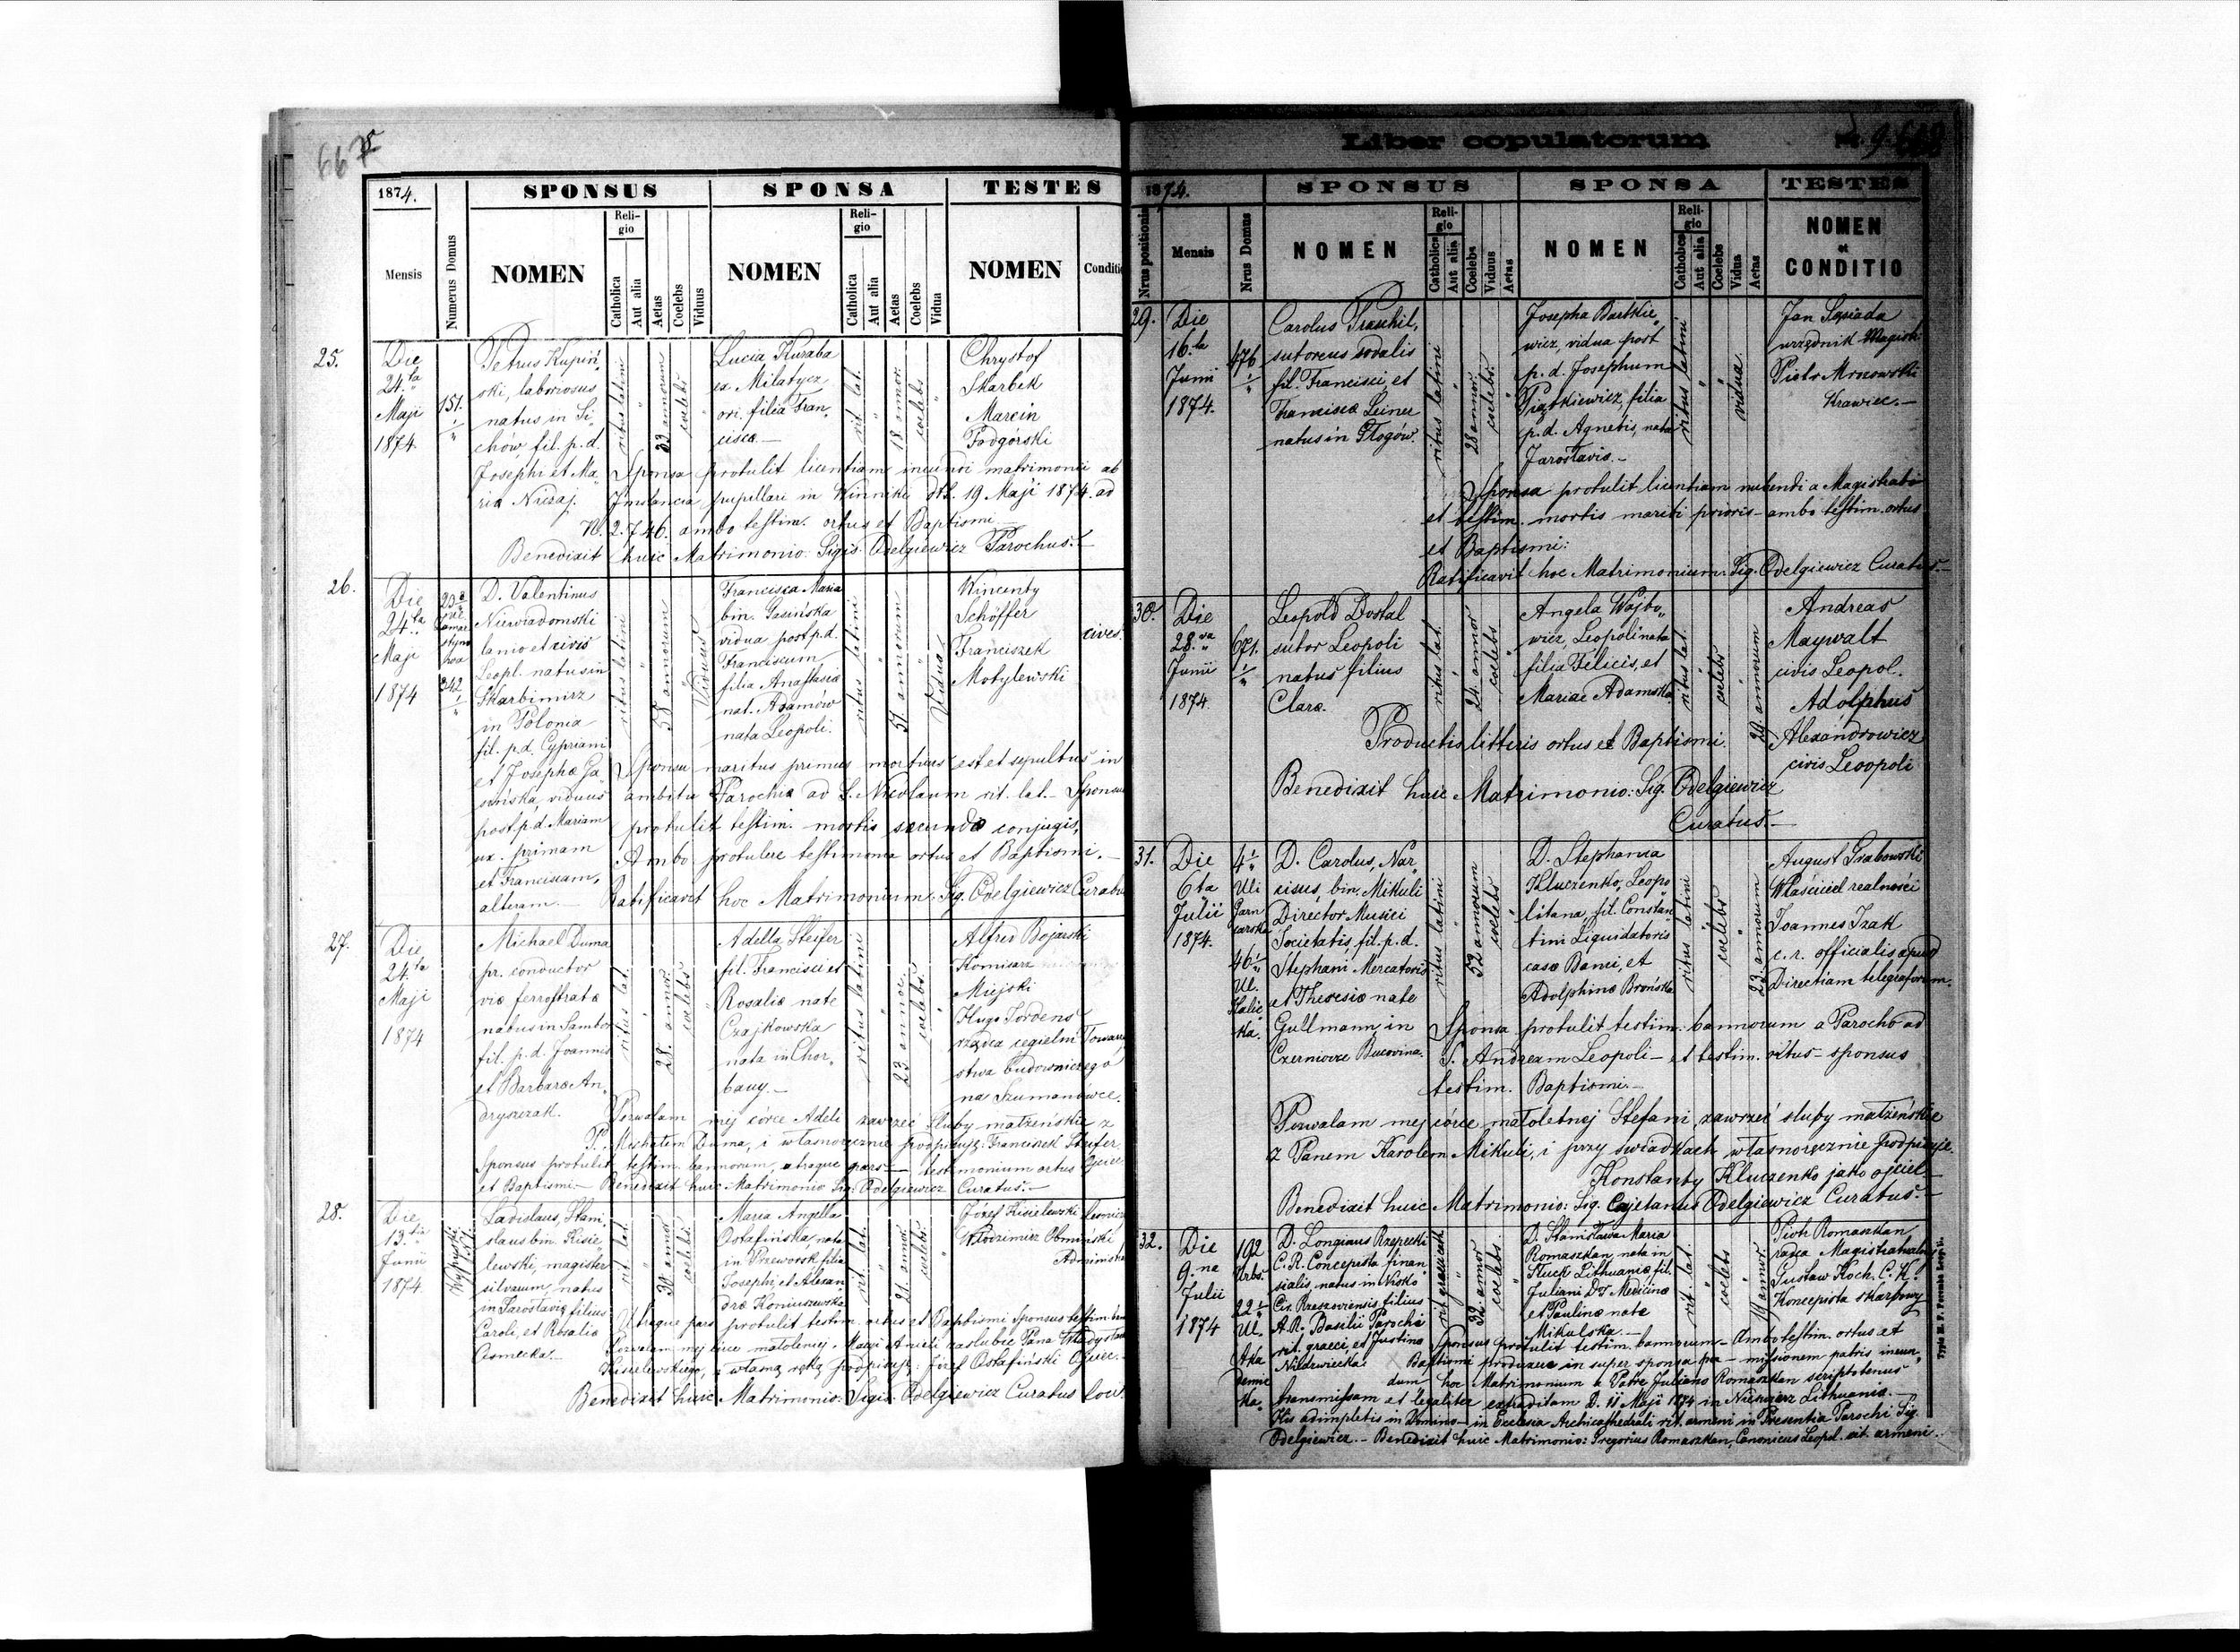 667
1874.
SPONSUS
SPONSA
TESTES
Mensis
Numerus Domus
NOMEN
Religio
Catholica
Aut alia
Aetas
Coelebs
Viduus
NOMEN
Religio
Catholica
Aut alia
Aetas
Coelebs
Vidua
NOMEN
Conditi
25.
Die
24.ta
Maji
1874.
151.
Petrus Kupiń,,
ski, laboriosus
natus in Si,,
chów, fil. p. d.
Josephi et Ma,,
ria Niczaj.
ritus latini
33 annorum
coelebs
Lucia Kuraba
ex Milatycz
ori. filia Fran,,
cisca.—
rit. lat.
18 annor.
coelebs
Chrystof
Skarbek
Marcin
Podgórski
Sponsa protulit licentiam ineundi matrimonii ab
Instancia pupillari in Winniki dtt. 19 Maji 1874. ad
N. 2.746. ambo testim. ortus et Baptismi
Benedixit huic Matrimonio Sigis. Odelgiewicz Parochus.—
26.
Die
24.ta
Maji
1874
342
D. Valentinus
Niewiadomski
lanio et civis
Leopl. natus in
Skarbimirz
in Polonia
fil. p.d. Cypriani
et Josepha Ga,,
sińska, viduus
post p.d. Mariam
ux. primam
et Franciscam,
alteram.—
ritus latini
58 annorum
Viduus
Francisca Maria
bin. Gasińska
vidua post p.d.
Franciscum
filia Anastasia
nat. Adamów
nata Leopoli.
ritus latini
51 annorum
Vidua
Wincenty
Schöffer
Franciszek
Motylewski
cives.
Sponsa maritus primus mortuus est et sepultus in
ambitu Parochia ad S. Nicolaum rit. lat.— Sponsus
protulit testim. mortis secunda conjugis,
Ambo protulere testimonia ortus et Baptismi.—
Ratificavit hoc Matrimonium: Sig. Odelgiewicz Curatu
27.
Die
24.ta
Maji
1874
Michael Duma
pr. conductor
viæ ferrostratæ
natus in Sambor
fil. p.d. Joannis
et Barbara An,,
dryszczak.
ritus lat.
28. annor
coelebs
Adella Steifer
fil. Francisci et
Rosaliæ nate
Czajkowska
nata in Chor,,
bacy.—
ritus latini
23 annor.
coelebs.
Alfred Bojarski
Komisarz
Miejski
Hugo Jordens
rządca cegielni Towarzy
stwa budowniczego
na Szumanówce.
Pozwalam mej córce Adeli zawrzeć śluby małżeńskie z
P. Michałem Duma, i własnoręcznie podpisuję: Franciszek Steifer
Ojciec
Sponsus protulit testim. bannorum, utraque pars— testimonium ortus
et Baptismi— Benedixit huic Matrimonio Sig. Odelgiewicz Curatus.—
28.
Die
13.tia
Junii
1874.
Ladislaus, Stani,,
slaus bin. Kisie,,
lewski, magister
silvarum, natus
in Jarosłavia, filius
Caroli, et Rosalia
Cismecka.—
rit. lat.
30 annor
coelebs.
Maria Angella
Ostafińska, nata
in Przeworsk filia
Josephi, et Alexan,,
dra Koniuszewska
rit. lat.
21. annor.
coelebs.
Józef Kisielewski
Włodzimierz Obmiński
Utraque pars protulit testim. ortus et Baptismi Sponsus testim.
Pozwalam mej córce małoletniej Maryi Anieli zaślubić Pana Władysława
Kisielewskiego, i własną ręką podpisuję: Józef Ostafiński Ojciec.—
Benedixit huic Matrimonio: Sigis. Odelgiewicz Curatus loci.
Liber copulatorum
1874.
SPONSUS
SPONSA
TESTES
Nrus positionis
Mensis
Nrus Domus
NOMEN
Religio
Catholica
Aut alia
Coelebs
Viduus
Aetas
NOMEN
Religio
Catholica
Aut alia
Coelebs
Vidua
Aetas
NOMEN
et
CONDITIO
29.
Die
16.ta
Junii
1874.
476
Carolus Praschil,
sutoreus sodalis
fil. Francisci, et
Francisca Leiner
natus in Głogów.
ritus latini
28 annor.
coelebs.
Josepha Bartkie,,
wicz, vidua post
p. d. Josephum
Piątkiewicz, filia
p. d. Agnetis, nata
Jarosłavia.—
ritus latini
vidua.
Jan Sąsiada
urzędnik Magistr.
Piotr Mrozowski
Krawiec.—
Sponsa protulit licentiam nubendi a Magistratu
et testim. mortis mariti prioris— ambo testim. ortus
et Baptismi:
Ratificavit hoc Matrimonium: Sig. Odelgiewicz Curatus.—
30.
Die
28.va
Junii
1874.
671.
Leopold Dostal
sutor Leopoli
natus filius
Clara.
ritus lat.
24 annor
coelebs
Angela Wojto,,
wicz, Leopoli nata
filia Felicis, et
Mariae Adamska.
ritus lat.
coelebs
24 annorum
Andreas
Maywalt
civis Leopol.
Adolphus
Alexandrowicz
civis Leopoli
Productis litteris ortus et Baptismi.
Benedixit huic Matrimonio: Sig. Odelgiewicz
Curatus.—
31.
Die
6ta
Julii
1874.
4
Uli
Garn
carska
46
Ul.
Halic
ka.
D. Carolus, Nar,,
cisus, bin. Mikuli
Director Musici
Societatis, fil. p. d.
Stephani Mercatoris
et Theresiæ nate
Gullmann, in
Czerniovze Bucovina.
ritus latini
52 annorum
coelebs
D. Stephania
Kluczenko, Leopo,,
litana, fil. Constan,,
tini Liquidatoris
casæ Banci, et
Adolphina Brońska
ritus latini
coelebs
23 annorum
August Grabowski
Właściciel realności
Joannes Izak
c. r. officialis apud
Directiam telegraforum.
Sponsa protulit testim. bannorum a Parocho ad
S. Andream Leopoli— et testim. ortus— sponsus
testim. Baptismi.—
Pozwalam mej córce małoletniej Stefani, zawrzeć śluby małżeńskie
z Panem Karolem Mikuli, i przy świadkach własnoręcznie podpisuje.
Konstanty Kluczenko jako ojciec—
Benedixit huic Matrimonio: Sig. Cajetanus Odelgiewicz Curatus.—
32.
Die
9.na
Julii
1874
192
Urbs.
22
Ul.
Aka
demic
ka.
D. Longinus Rzepecki
C. R. Concepista finan,,
sialis, natus in Nisko
Cir. Rzeszoviensis, filius
A. R. Basilii Parochi
rit. graeci, et Justina
Nildzwiecka.
rit. graeci cath.
32. annor
coelebs.
D. Stanislawa Maria
Romaszkan, nata in
Słuck Lithuania, fil.
Juliani Dr. Medicinæ
et Paulinæ nate
Mikulska.—
rit. lat.
coelebs
19 annor.
Piotr Romaszkan
radca Magistratualny
Gustaw Koch. C. K.
Koncepista skarbowy
Sponsus protulit testim. bannorum— Ambo testim. ortus et
Baptismi produxere in super sponsa per— missionem patris ineun,,
dum hoc Matrimonium a Patre Juliano Romaszkan scriptotenus
transmissam et legaliter extraditam D. 11 Maji 1874 in Nieswiez Lithuania.—
His adimpletis in Domino— in Ecclesia Archicathedrali rit. armeni in Presentia Parochi Sig.
Odelgiewicz.— Benedixit huic Matrimonio: Gregorius Romaszkan, Canonicus Leopol. rit. armeni.